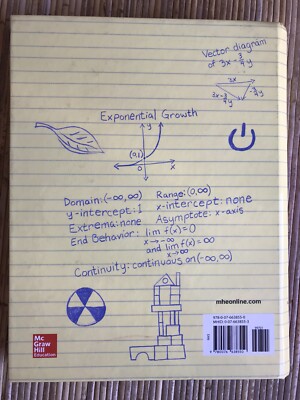 Vector diagram
of 3x - 3/4 y
3x
3x - 3/4 y
-3/4 y
Exponential Growth
y
(0,1)
0
x
Domain: (-∞,∞) Range: (0,∞)
y-intercept: 1 x-intercept: none
Extrema: none Asymptote: x-axis
End Behavior: lim f(x) = 0
x→-∞
and lim f(x) = ∞
x→∞
Continuity: continuous on (-∞,∞)
mheonline.com
Mc
Graw
Hill
Education